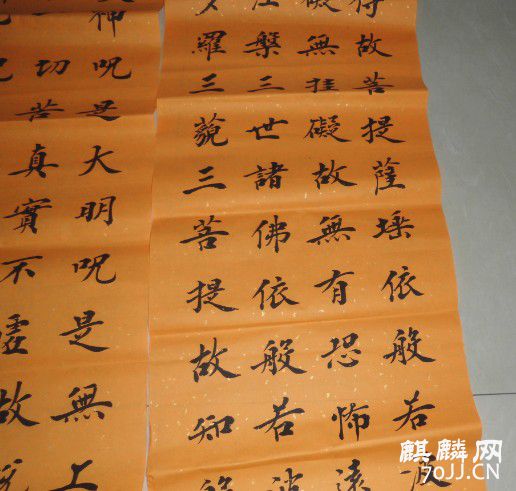 故菩提薩埵依般若
無挂礙故無有恐怖遠
槃三世諸佛依般若波
羅三藐三菩提故知般
神呪是大明呪是無上
切苦真實不虛故說
麒麟网
70JJ.CN